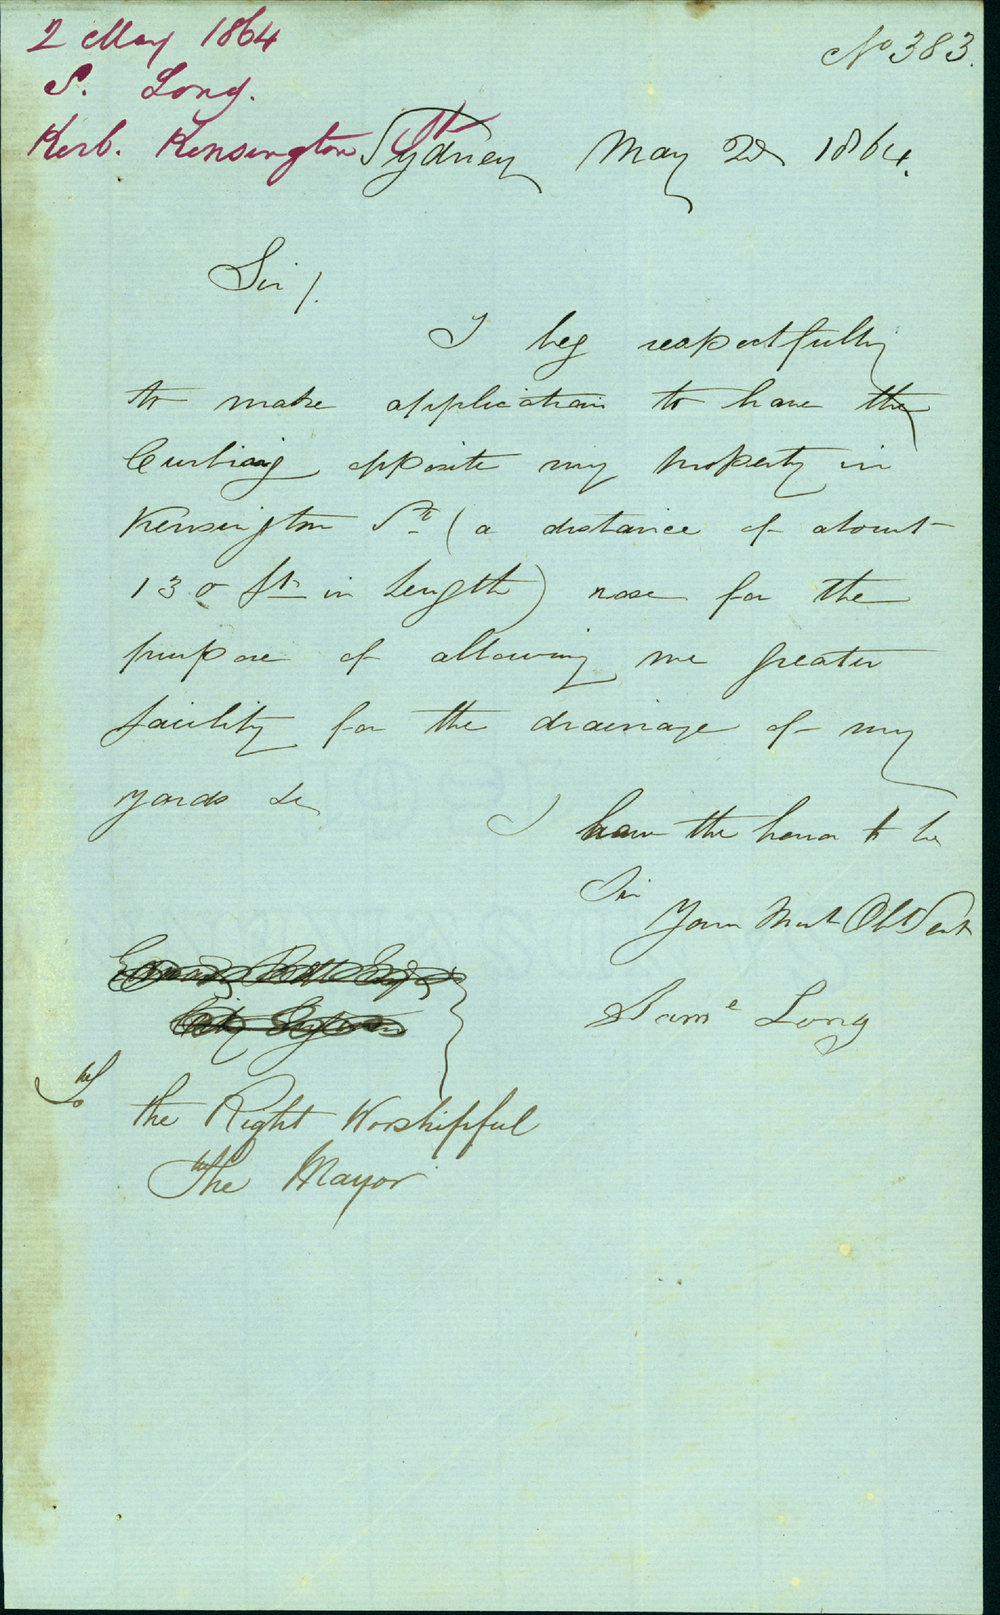 2 May 1864
No 383.
S. Long.
Kerb. Kensington St
Sydney May 2d 1864.
Sir/.
I beg respectfully
to make application to have the
Curbing opposite my property in
Kensington St (a distance of about
130 ft in length) rose for the
purpose of allowing me greater
facility for the drainage of my
yards &c
I have the honor to be
Sir
Your Most Obt Servt
Edward Bell Esqr
City Engineer
Saml Long
To
the Right Worshipful
The Mayor